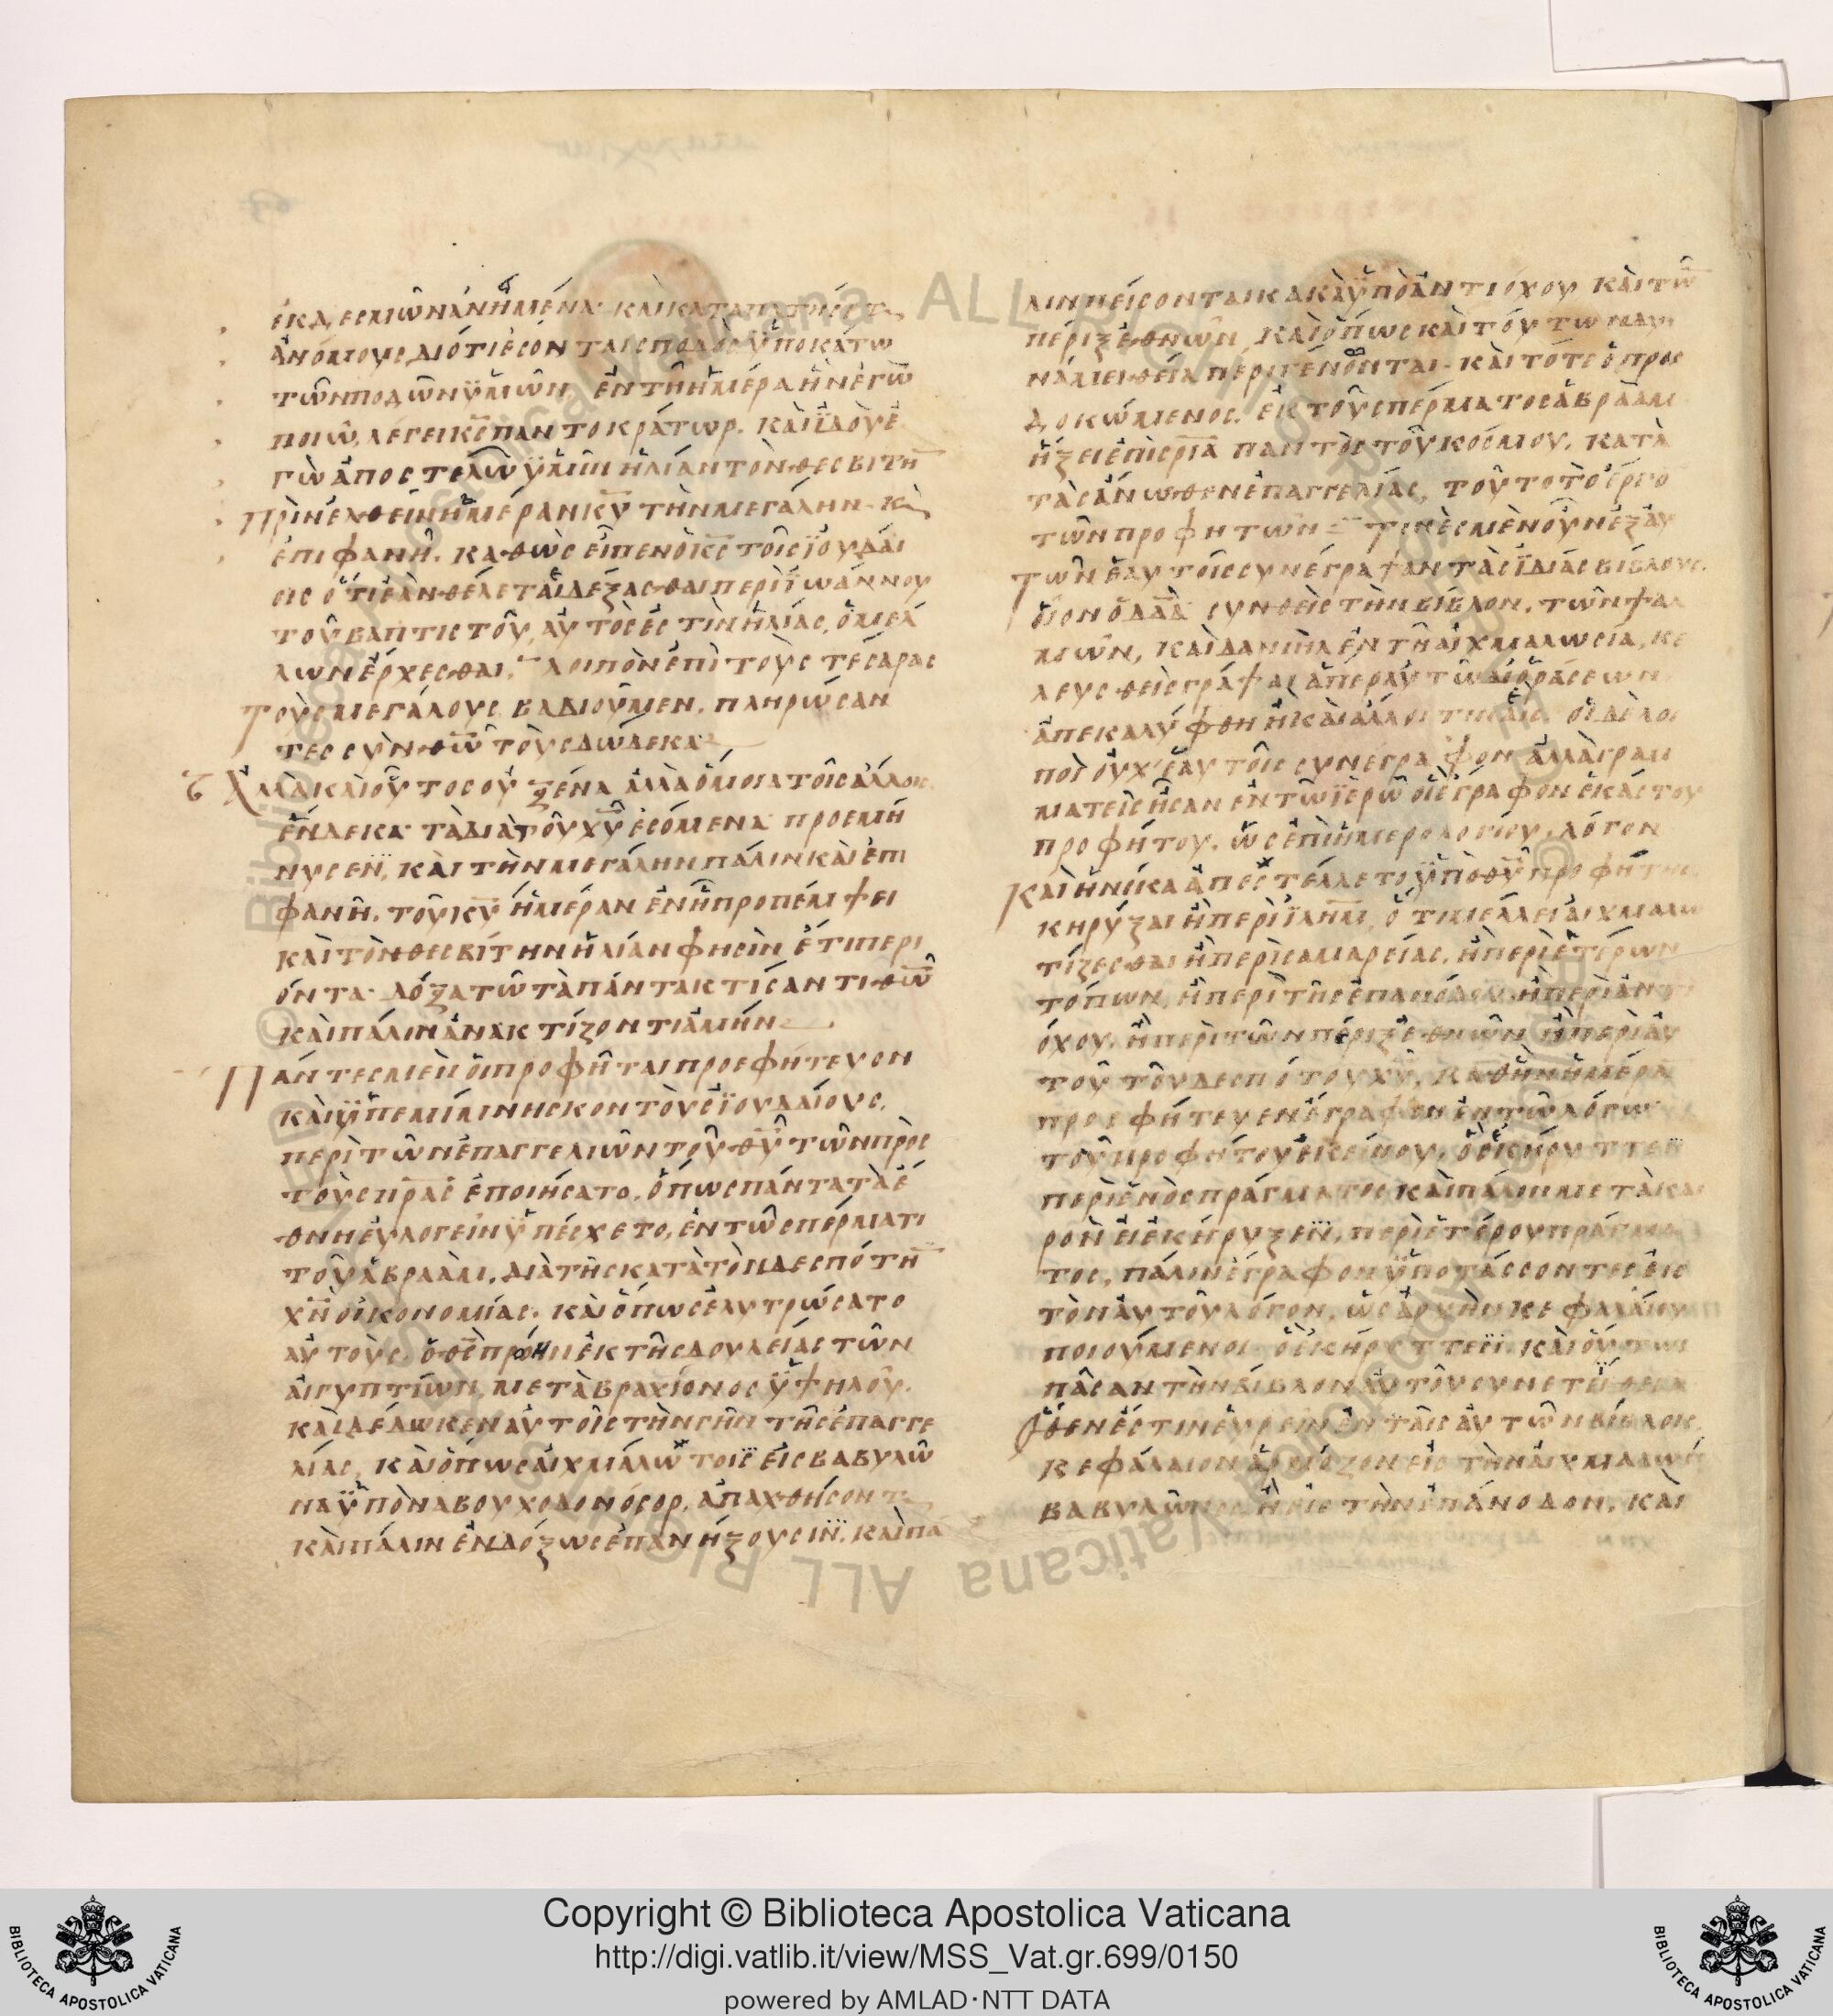 ἐκ δεσμῶν ἀνημένα· καὶ καταπατήσετε
ἀνόμους, διότι ἔσονται σποδὸς ὑποκάτω
τῶν ποδῶν ὑμῶν, ἐν τῇ ἡμέρᾳ ᾗ ἐγὼ
ποιῶ, λέγει κς παντοκράτωρ. καὶ ἰδοὺ ἐ
γὼ ἀποστελῶ ὑμῖν ἠλίαν τὸν θεσβίτη
πρὶν ἐλθεῖν ἡμέραν κυ τὴν μεγάλην καὶ
ἐπιφανῆ. καθὼς εἶπεν ὁ κς τοῖς ἰουδαί
οις ὅτι ἐὰν θέλεται δέξασθαι περὶ ἰωάννου
τοῦ βαπτιστοῦ, αὐτὸς ἐστὶν ἠλίας, ὁ μέλ
λων ἔρχεσθαι. λοιπὸν ἐπὶ τοὺς τέσαρας
τοὺς μεγάλους βαδιοῦμεν, πληρώσαν
τες σὺν θω τοὺς δώδεκα
Ἀλλὰ καὶ οὗτος οὐ ξένα ἀλλὰ ὅμοια τοῖς ἄλλοις
ἕνδεκα τὰ διὰ τοῦ χυ ἐσόμενα προεμή
νυσεν, καὶ τὴν μεγάλην πάλιν καὶ ἐπι
φανῆ, τοῦ κυ ἡμέραν ἐν ᾗ προπέμψει
καὶ τὸν θεσβίτην ἠλίαν φησὶν ἔτι περι
όντα· δόξα τῶ τὰ πάντα κτίσαντι θω
καὶ πάλιν ἀνακτίζοντι ἀμήν
Πάντες μὲν οἱ προφῆται προεφήτευον
καὶ ὑπεμίμνησκον τοὺς ἰουδαίους,
περὶ τῶν ἐπαγγελιῶν τοῦ θυ τῶν πρὸς
τοὺς πρας ἐποιήσατο, ὅπως πάντα τὰ ἔ
θνη εὐλογεῖν ὑπέσχετο, ἐν τῶ σπέρματι
τοῦ ἀβραὰμ, διὰ τῆς κατὰ τὸν δεσπότη
χν οἰκονομίας. καὶ ὅπως ἐλυτρώσατο
αὐτοὺς ὁ θς πρώην ἐκ τῆς δουλείας τῶν
αἰγυπτίων, μετὰ βραχίονος ὑψηλοῦ.
καὶ δέδωκεν αὐτοῖς τὴν γῆν τῆς ἐπαγγε
λίας, καὶ ὅπως αἰχμάλωτοι εἰς βαβυλῶ
να ὑπὸ ναβουχοδονόσορ, ἀπαχθήσονται
καὶ πάλιν ἐνδόξως ἐπανήξουσιν. καὶ πά
λιν πείσονται κακὰ ὑπὸ ἀντιόχου καὶ τῶ
πέριξ ἐθνῶν, καὶ ὅπως καὶ τούτων δυ
νάμει θεία περιγένονται· καὶ τότε ὁ προσ
δοκώμενος, ἐκ τοῦ σπέρματος ἀβραὰμ
ἥξει ἐπὶ σρια παντὸς τοῦ κόσμου, κατὰ
τὰς ἄνωθεν ἐπαγγελίας, τοῦτο τὸ ἔργο
τῶν προφητῶν τινὲς μὲν οὖν ἐξ αυ
τῶν ἑαυτοῖς συνέγραψαν τὰς ἰδίας βίβλους.
οἷον ὁ δαδ συνθεὶς τὴν βίβλον, τῶν ψαλ
μῶν, καὶ δανιὴλ ἐν τῇ αἰχμαλωσία, κε
λευσθεὶς γράψαι ἅπερ αὐτῶ δι ὁράσεων
ἀπεκαλύφθη οἱ δὲ λοι
ποὶ οὐχ ἑαυτοῖς συνέγραφον ἀλλὰ γραμ
ματεῖς ἦσαν ἐν τῶ ἱερῶ οἳ ἔγραφον ἑκάστου
προφήτου, ὡς ἐπὶ ἡμερολογίου λόγον
καὶ ἡνίκα ἀπεστέλλετο ὑπὸ θυ προφήτης
κηρύξαι ἢ περὶ ιλημ, ὅτι μέλλει αἰχμαλω
τίζεσθαι ἢ περὶ σαμαρείας, ἢ περὶ ἑτέρων
τόπων, ἢ περὶ τῆς ἐπανόδου ἢ περὶ ἀντι
όχου, ἢ περὶ τῶν πέριξ ἐθνῶν ἢ περὶ αὐ
τοῦ τοῦ δεσπότου χυ, καθ ἣν ἡμέρα
προεφήτευεν ἔγραφον ἐν τῶ λόγω
τοῦ προφήτου ἐκείνου, ὃ ἐκήρυττεν
περὶ ἑνὸς πράγματος καὶ πάλιν μετὰ και
ρὸν εἰ ἐκήρυξεν, περὶ ἑτέρου πράγμα
τος, πάλιν ἔγραφον ὑποτάσσοντες εἰς
τὸν αὐτοῦ λόγον, ὡς ἀρχὴν κεφαλαίου
ποιούμενοι ὃ ἐκήρυττεν καὶ οὕτως
πᾶσαν τὴν βίβλον αὐτοῦ συνετίθεσαν
ὅθεν ἔστιν εὑρεῖν ἐν ταῖς αὐτῶν βίβλοις,
κεφάλαιον ἁρμόζον εἰς τὴν αἰχμαλωσία
βαβυλῶνος ἢ εἰς τὴν ἐπάνοδον, καὶ
Copyright © Biblioteca Apostolica Vaticana
http://digi.vatlib.it/view/MSS_Vat.gr.699/0150
powered by AMLAD·NTT DATA
BIBLIOTECA APOSTOLICA VATICANA
BIBLIOTECA APOSTOLICA VATICANA